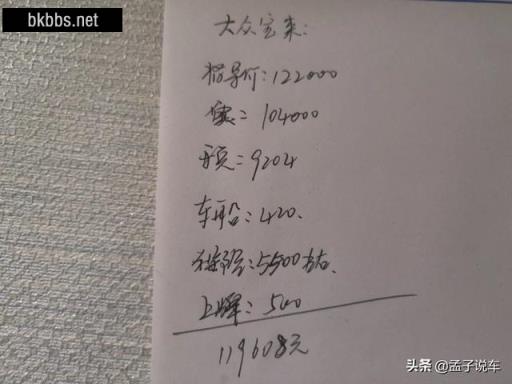 bkbbs.net
大众宝来:
指导价:122000
裸=104000
购完=9204
车船:420.
保险:5500左右.
上牌:500
119608元
头条 @孟子说车